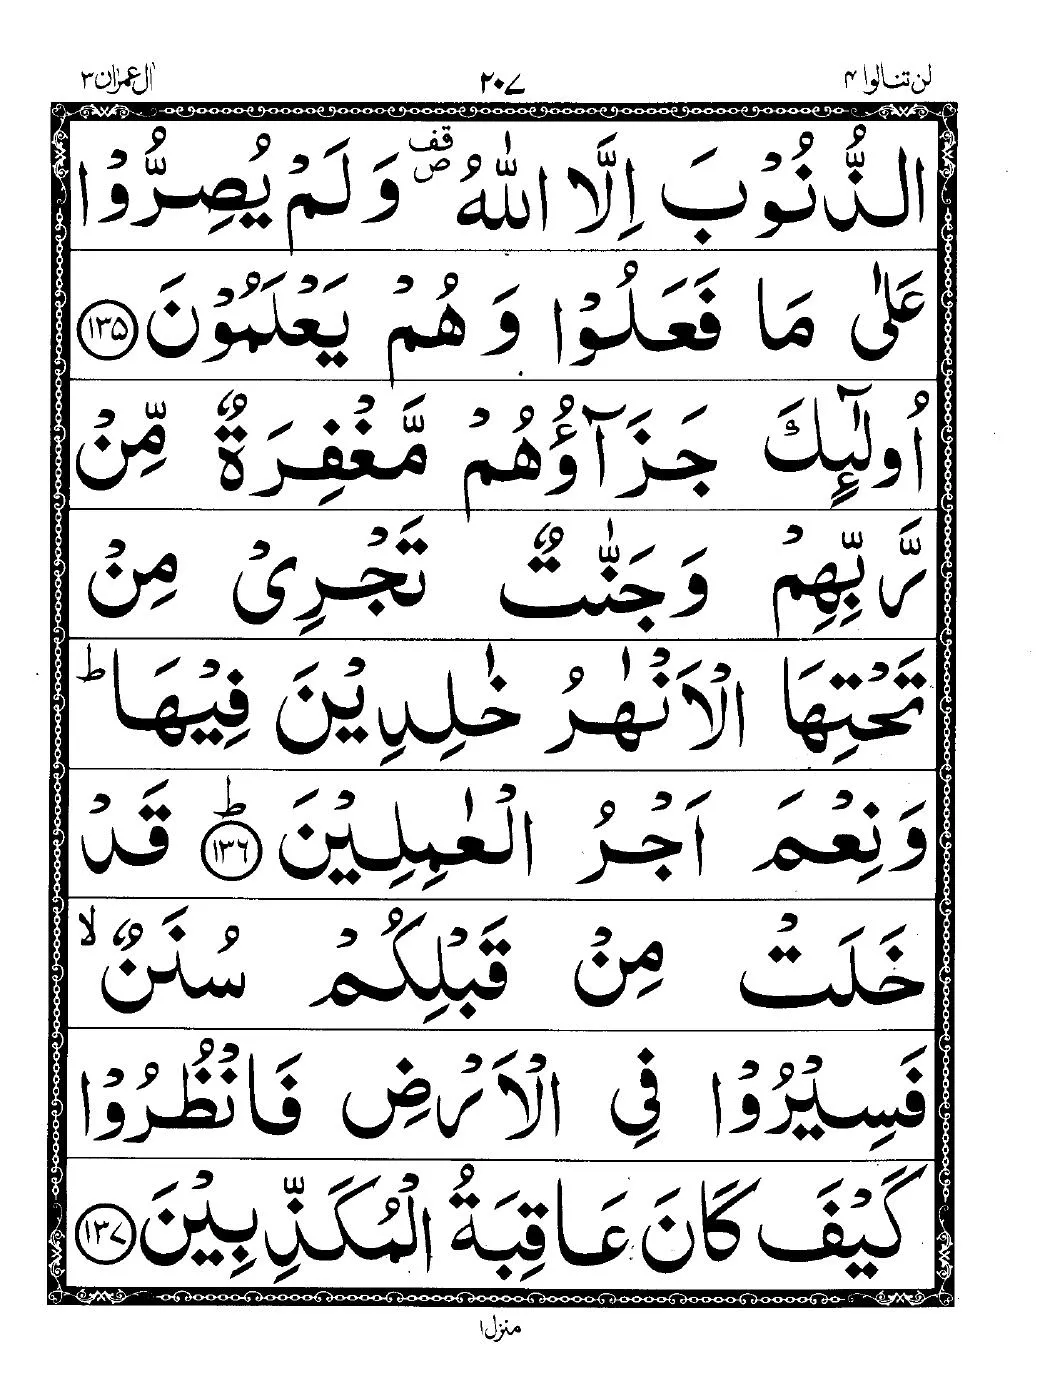 لن تنالوا ۴ ۲۰۷ اٰل عمرٰن ۳
الذُّنُوْبَ اِلَّا اللّٰهُ ۪ۨ وَ لَمْ يُصِرُّوْا
عَلٰى مَا فَعَلُوْا وَ هُمْ يَعْلَمُوْنَ ۱۳۵
اُولٰٓئِكَ جَزَآؤُهُمْ مَّغْفِرَةٌ مِّنْ
رَّبِّهِمْ وَ جَنّٰتٌ تَجْرِيْ مِنْ
تَحْتِهَا الْاَنْهٰرُ خٰلِدِيْنَ فِيْهَا ؕ
وَ نِعْمَ اَجْرُ الْعٰمِلِيْنَ ؕ ۱۳۶ قَدْ
خَلَتْ مِنْ قَبْلِكُمْ سُنَنٌ ۙ
فَسِيْرُوْا فِي الْاَرْضِ فَانْظُرُوْا
كَيْفَ كَانَ عَاقِبَةُ الْمُكَذِّبِيْنَ ۱۳۷
منزل ۱